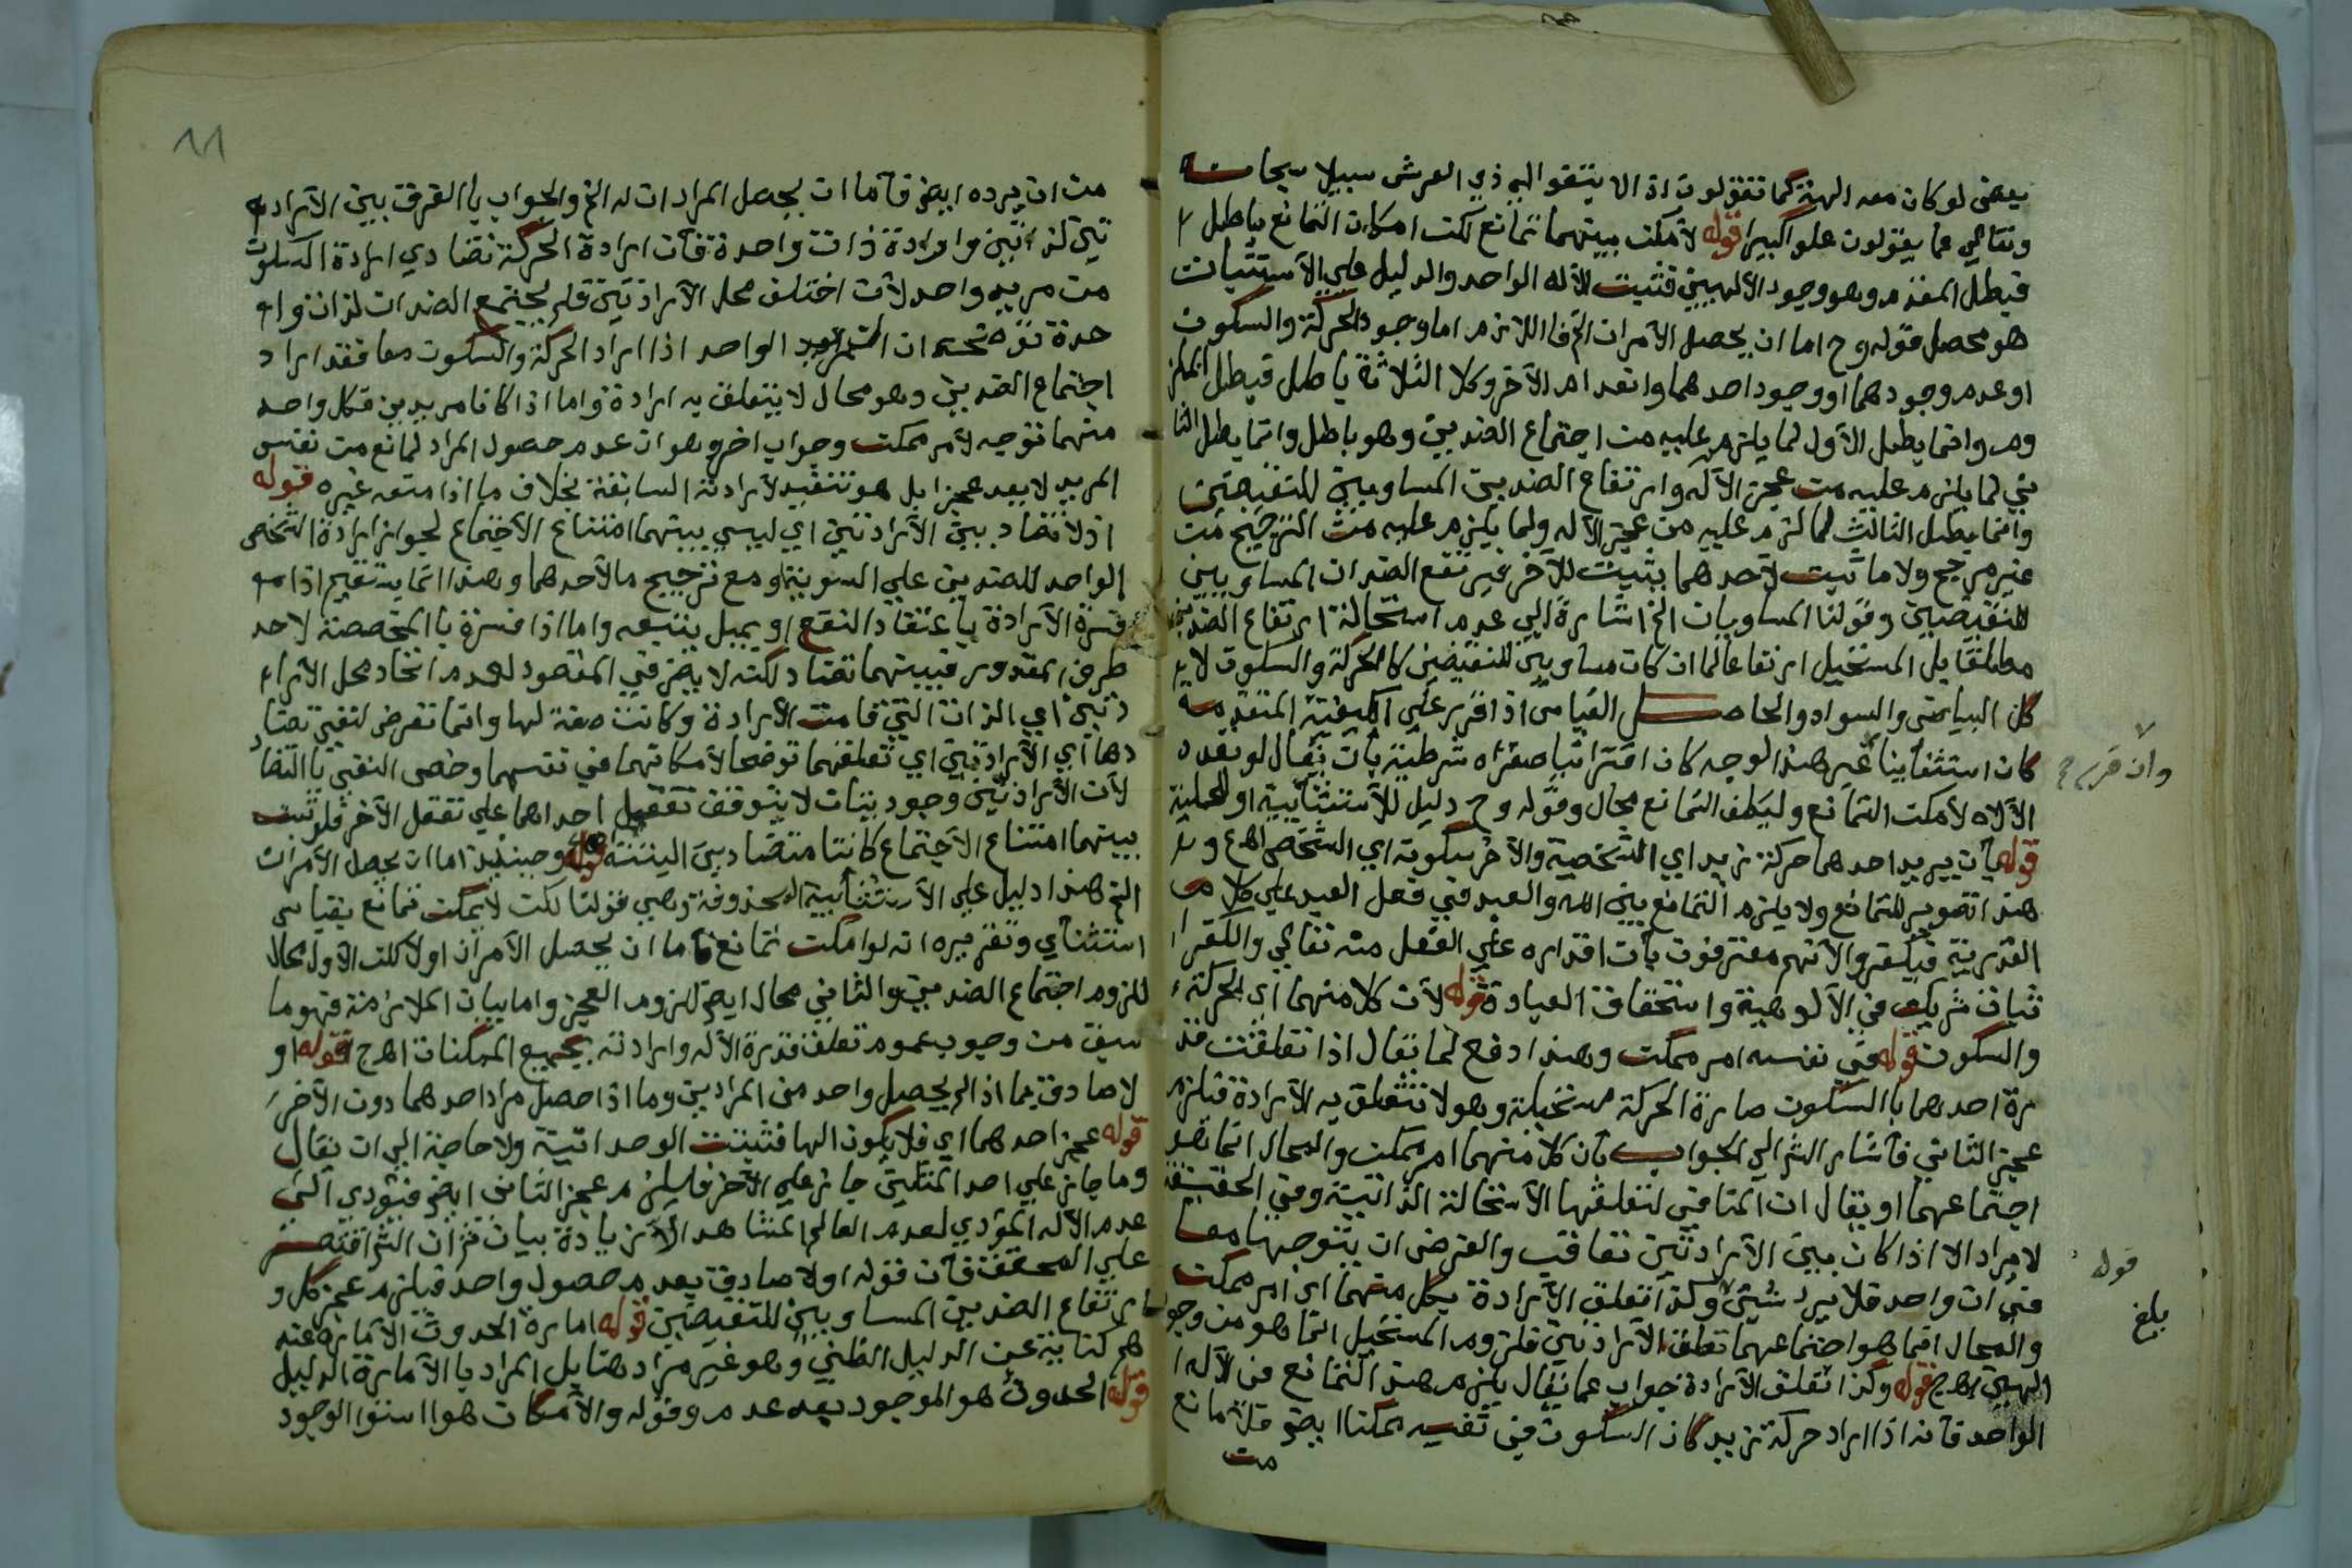 بعض لو كان معه الهة كما تقولون اذا لا ابتغوا الي ذي العرش سبيلا سبحانه
وتعالي عما يقولون علوا كبيرا قوله لامكن بينهما تمانع لكن امكان التمانع باطل
فبطل المقدم وهو وجود الالهين فثبت الاله الواحد والدليل علي الاستثنائية
هو محصل قوله وح اما ان يحصل الامران الخ فاللازم اما وجود الحركة والسكون
او عدم وجودهما او وجود احدهما وانعدام الاخر وكلا الثلاثة باطل فبطل الملز
وم وانما بطل الاول لما يلزم عليه من اجتماع الضدين وهو باطل وانما بطل الثا
ني لما يلزم عليه من عجز الاله وارتفاع الضدين المساويين للنقيضين
وانما بطل الثالث لما لزم عليه من عجز الاله ولما يلزم عليه من الترجيح من
غير مرجح ولا ما ثبت لاحدهما يثبت للاخر غير تقع الضدان المساويين
للنقيضين وقولنا المساويان الخ اشارة الي عدم استحالة ارتفاع الضدين
مطلقا بل المستحيل ارتفاعهما ان كان مساويين للنقيضين كالحركة والسكون لا
كل البياض والسواد والحاصل القياس اذا قرر علي الكيفية المتقدمة
كان استثنائيا غير هذا الوجه كان اقترانيا صغراه شرطية بان يقال لو تعدد
وان قرر
الاله لامكن التمانع وليكف التمانع محال وقوله وح دليل للاستثنائية او الحملية
قوله بان يريد احدهما حركة زيد اي الشخصية والاخر سكونه اي الشخص اهع و
هذا تصوير للتمانع ولا يلزم التمانع بين الله والعبد في فعل العبد علي كلام
القدرية فيكفروا لانهم معترفون بان اقداره علي الفعل منه تعالي والكفر ا
ثبات شريك في الالوهية واستحقاق العبادة قوله لان كلا منهما اي الحركة
والسكون قوله في نفسه امر ممكن وهذا دفع لما يقال اذا تعلقت قد
رة احدهما بالسكون صارة الحركة مستحيلة وهو لا تتعلق به الارادة فيلزم
عجز الثاني فاشار الش الي الجواب بان كلا منهما امر ممكن والمحال انما هو
اجتماعهما او يقال ان المنافي لتعلقها الاستحالة الذاتية وفي الحقيقة
لا مراد الا اذا كان بين الارادتين تعاقب والفرض ان يتوجها معا
قوله
في ان واحد فلا يرد شيئ وكذا تعلق الارادة بكل منهما اي امر ممكن
والمحال انما هو اجتماعهما تعلق الارادتين فلزوم المستحيل انما هو من وجو
بلغ
الهين اهج قوله وكذا تعلق الارادة جواب عما يقال يلزم هذا التمانع من الاله ا
الواحد فانه اذا اراد حركة زيد كان السكون في نفسه ممكنا ايضو فلا مانع
من
١١
من ان يرده ايضو فاما ان يحصل المرادات له الخ والجواب با الفرق بين الاراد
تين لذاتين وارادة ذات واحدة فان ارادة الحركة تضادي ارادة السكون
من مريد واحد لان اختلف محل الارادتين فلم يجتمع الضدان لذات وا
حدة ان المريد الواحد اذا اراد الحركة والسكون معا فقد اراد
اجتماع الضدين وهو محال لا يتعلق به ارادة واما اذا كانا مريدين فكل واحد
منهما توجه لامر ممكن وجواب اخر وهو ان عدم حصول المراد لمانع من نفس
المريد لا يعد عجزا بل هو تنفيذ لارادته السابقة بخلاف ما اذا منعه غيره قوله
اذ لا تضاد بين الارادتين اي ليس بينهما امتناع الاجتماع لجواز ارادة الشخص
الواحد للضدين علي السوية او مع ترجيح ما لاحدهما وهذا انما يستقيم اذا
فسرة الارادة باعتقاد النفع او بميل يتبعه واما اذا فسرة با المخصصة لاحد
طرفي المقدور فبينهما تضاد لكنه لا يضر في المقصود لعدم اتحاد محل الارا
دتين اي الذات التي قامت الارادة وكانت صفة لها وانما تعرض لنفي تضا
دها اي الارادتين اي تعلقهما توضحا لامكانهما في نفسهما وخص النفي با التضا
لان الارادتين وجوديتان لا يتوقف تعقل احداهما علي تعقل الاخر فلو ثبت
بينهما امتناع الاجتماع كانتا متضادين البتة قوله وحينئذ اما ان يحصل الامران
الخ هذا دليل علي الاستثنائية المحذوفة وهي قولنا لكن لا يمكن تمانع بقياس
استثنائي وتقريره انه لو امكن تمانع فاما ان يحصل الامران او لا كلن الاول محال
للزوم اجتماع الضدين والثاني محال ايضو للزوم العجز واما بيان الملازمة فهو ما
سبق من وجوب عموم تعلق قدرة الاله وارادته بجميع الممكنات اهج قوله او
لا صادق بما اذا لم يحصل واحد من المرادين وما اذا حصل مراد احدهما دون الاخر
قوله عجز احدهما اي فلا يكون الها فثبتت الوحدانية ولا حاجة الي ان يقال
وما جاز علي احد المثلين جاز علي الاخر فليلزم عجز الثاني ايضو فيؤدي الي
عدم الاله المؤدي لعدم العالم المشاهد لان زيادة بيان فز ان الش اقتصر
علي المحقق فان قوله او لا صادق بعدم حصول واحد فيلزم عجز كل و
ارتفاع الضدين المساويين للنقيضين قوله امارة الحدوث الامارة عنه
هم كناية عن الدليل الظني وهو غير مراد هنا بل المراد با الامارة الدليل
قوله الحدوث هو الموجود بعد عدم وقوله والامكان هو استوا الوجود